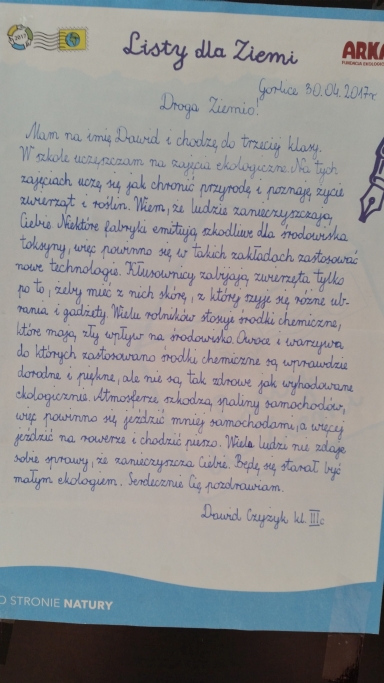 2017
Listy dla Ziemi
ARKA
FUNDACJA EKOLOGICZNA
Gorlice 30.04.2017r
Droga Ziemio!
Mam na imię Dawid i chodzę do trzeciej klasy.
W szkole uczęszczam na zajęcia ekologiczne. Na tych
zajęciach uczę się jak chronić przyrodę i poznaję życie
zwierząt i roślin. Wiem, że ludzie zanieczyszczają
Ciebie. Niektóre fabryki emitują szkodliwe dla środowiska
toksyny, więc powinno się w takich zakładach zastosować
nowe technologie. Kłusownicy zabijają zwierzęta tylko
po to, żeby mieć z nich skórę, z której szyje się różne ub-
rania i gadżety. Wielu rolników stosuje środki chemiczne,
które mają zły wpływ na środowisko. Owoce i warzywa
do których zastosowano środki chemiczne są wprawdzie
dorodne i piękne, ale nie są tak zdrowe jak wyhodowane
ekologicznie. Atmosferze szkodzą spaliny samochodów,
więc powinno się jeździć mniej samochodami, a więcej
jeździć na rowerze i chodzić pieszo. Wiele ludzi nie zdaje
sobie sprawy, że zanieczyszcza Ciebie. Będę się starał być
małym ekologiem. Serdecznie Cię pozdrawiam.
Dawid Czyżyk kl. IIIc
O STRONIE NATURY